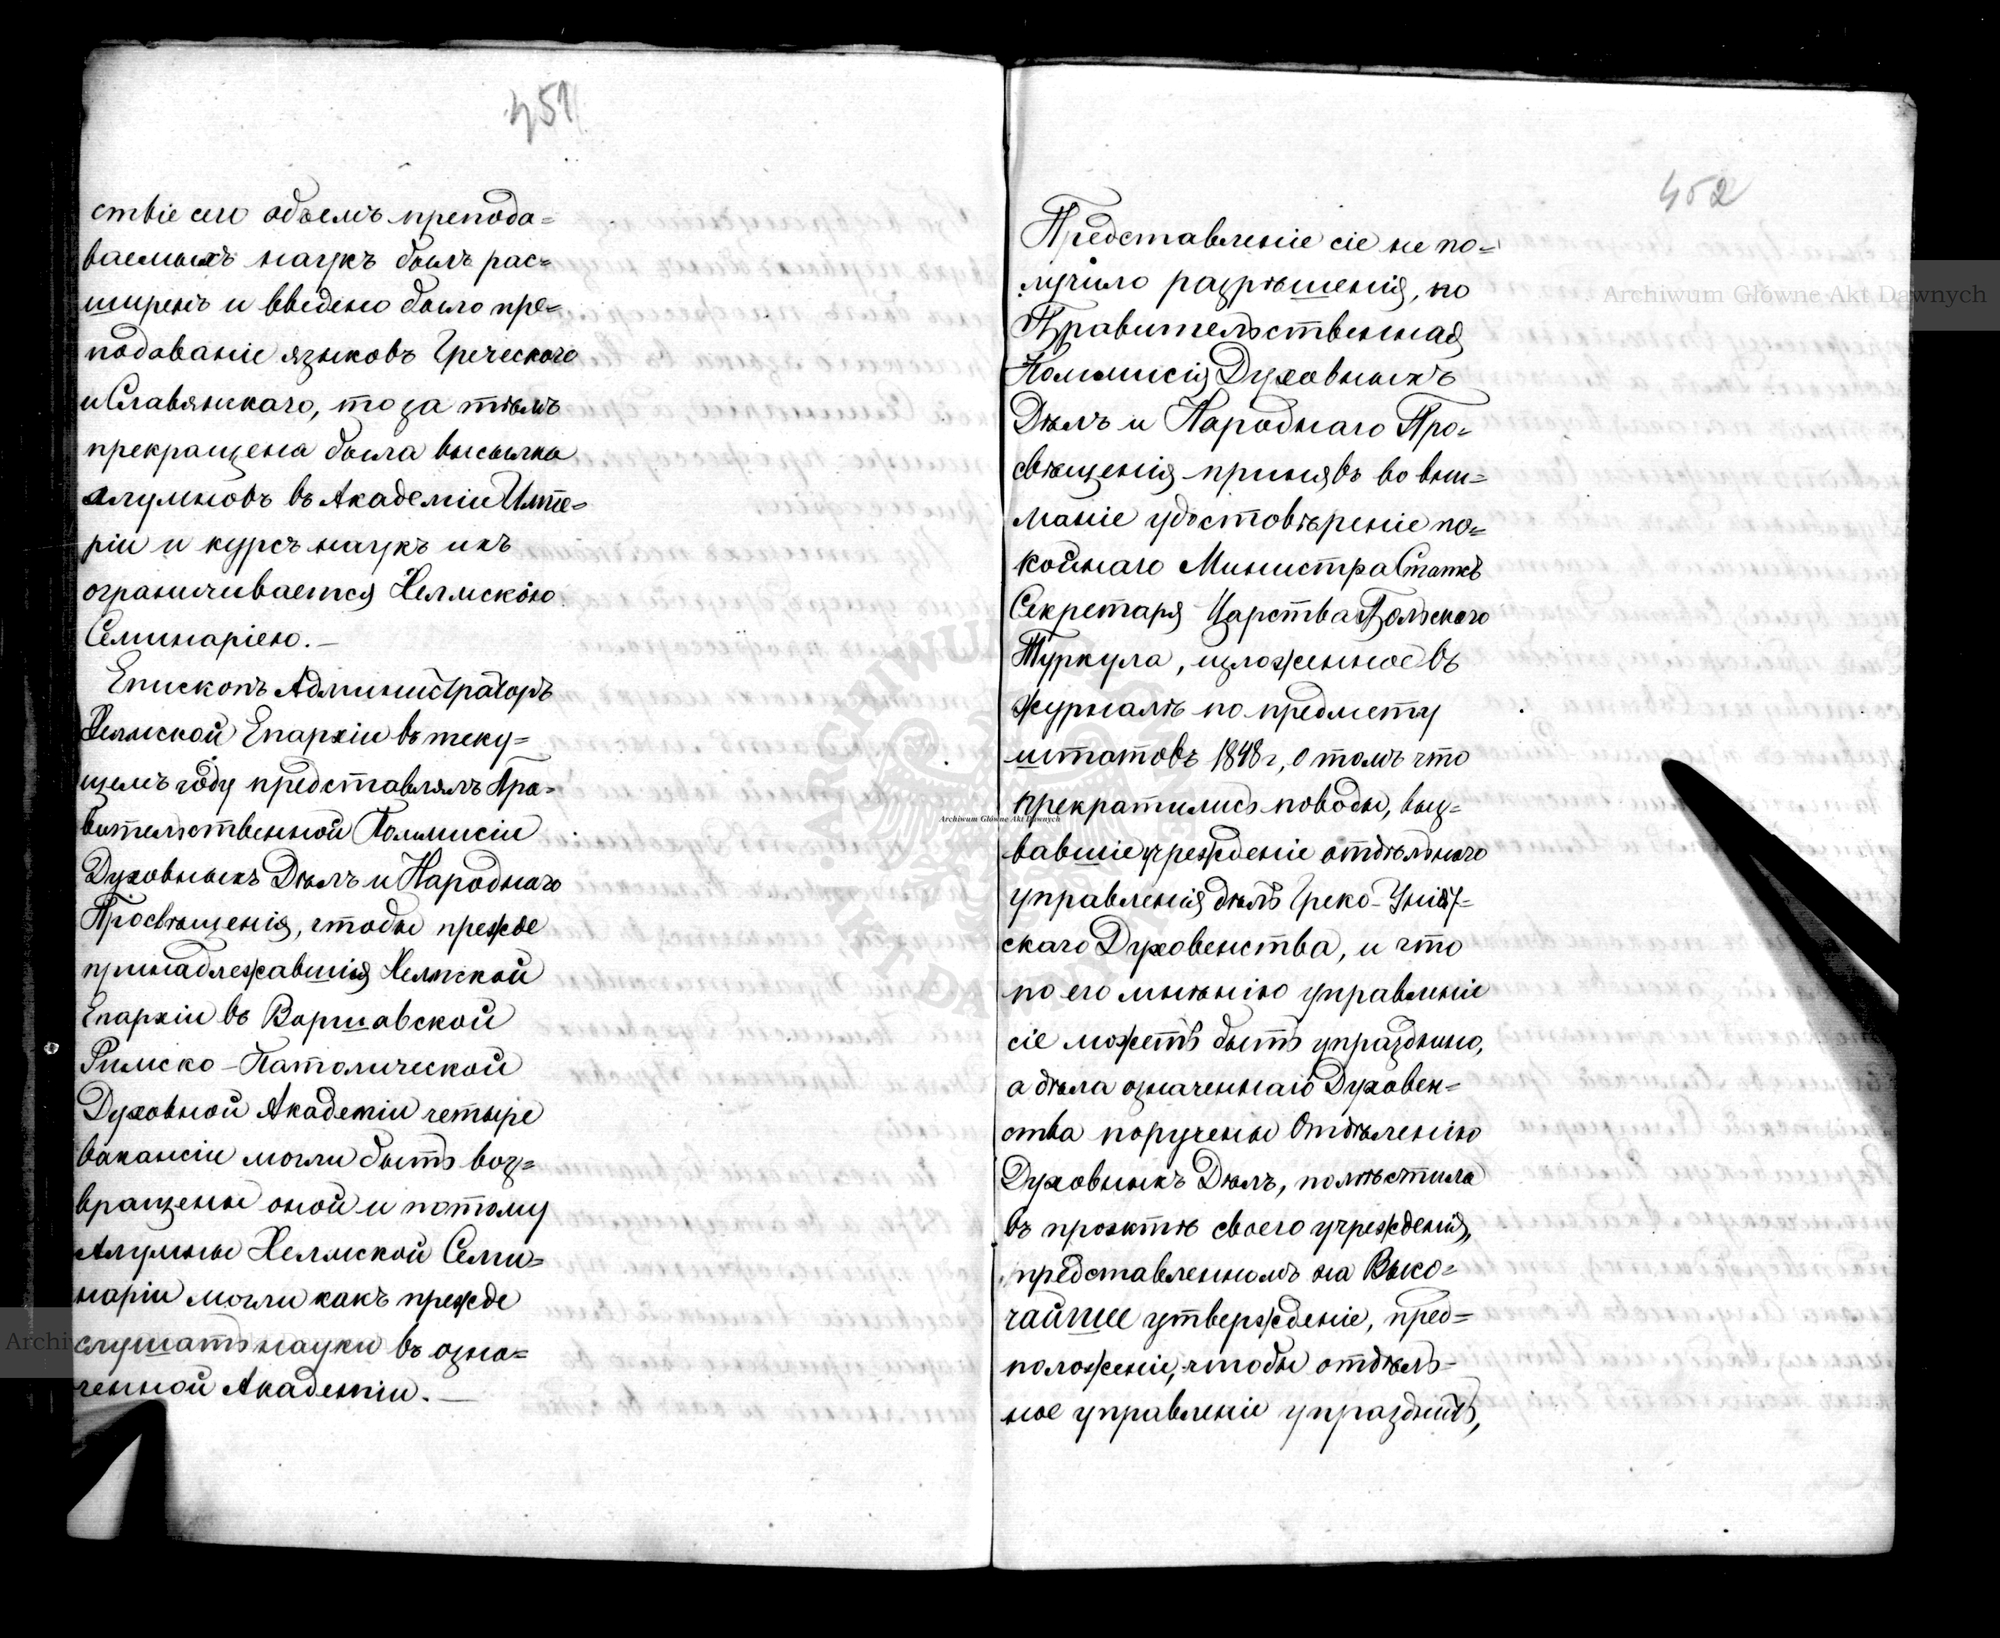 451
ствіе сего объемъ препода=
ваемыхъ наукъ былъ рас=
ширенъ и введено было пре=
подаваніе языковъ Греческого
и Славянскаго, то за тѣмъ
прекращена была высылка
алумновъ въ Академіи Импе=
ріи и курсъ наукъ ихъ
ограничивается Хелмскою
Семинаріею. —
Епископъ Администраторъ
Хелмской Епархіи въ теку=
щемъ году представлялъ Пра=
вительственной Коммисіи
Духовныхъ Дѣлъ и Народнаго
Просвѣщенія, чтобы прежде
принадлежавшія Хелмской
Епархіи въ Варшавской
Римско-Католической
Духовной Академіи четыре
вакансіи могли быть воз=
вращены оной и потому
Алумны Хелмской Семи=
наріи могли какъ прежде
слушать науки въ озна=
ченной Академіи. —
452
Представленіе сіе не по=
лучило разрѣшенія, но
Правительственная
Коммисія Духовныхъ
Дѣлъ и Народнаго Про=
свѣщенія принявъ во вни=
маніе удостовѣреніе по=
койнаго Министра Статсъ
Секретаря Царства Польскаго
Туркула, изложенное въ
журналѣ по предмету
штатовъ 1848 г, о томъ что
прекратились поводы, выз=
вавшіе учрежденіе отдѣльнаго
управленія дѣлъ Греко-Уніят=
скаго Духовенства, и что
по его мнѣнію управленіе
сіе можетъ быть упразднено,
а дѣла означеннаго Духовен=
ства поручены Отдѣленію
Духовныхъ Дѣлъ, помѣстила
въ проэктѣ своего учрежденія,
представленномъ на Высо=
чайшее утвержденіе, пред=
положеніе, чтобы отдѣль=
ное управленіе упразднить,
Archiwum Główne Akt Dawnych
Archiwum Główne Akt Dawnych